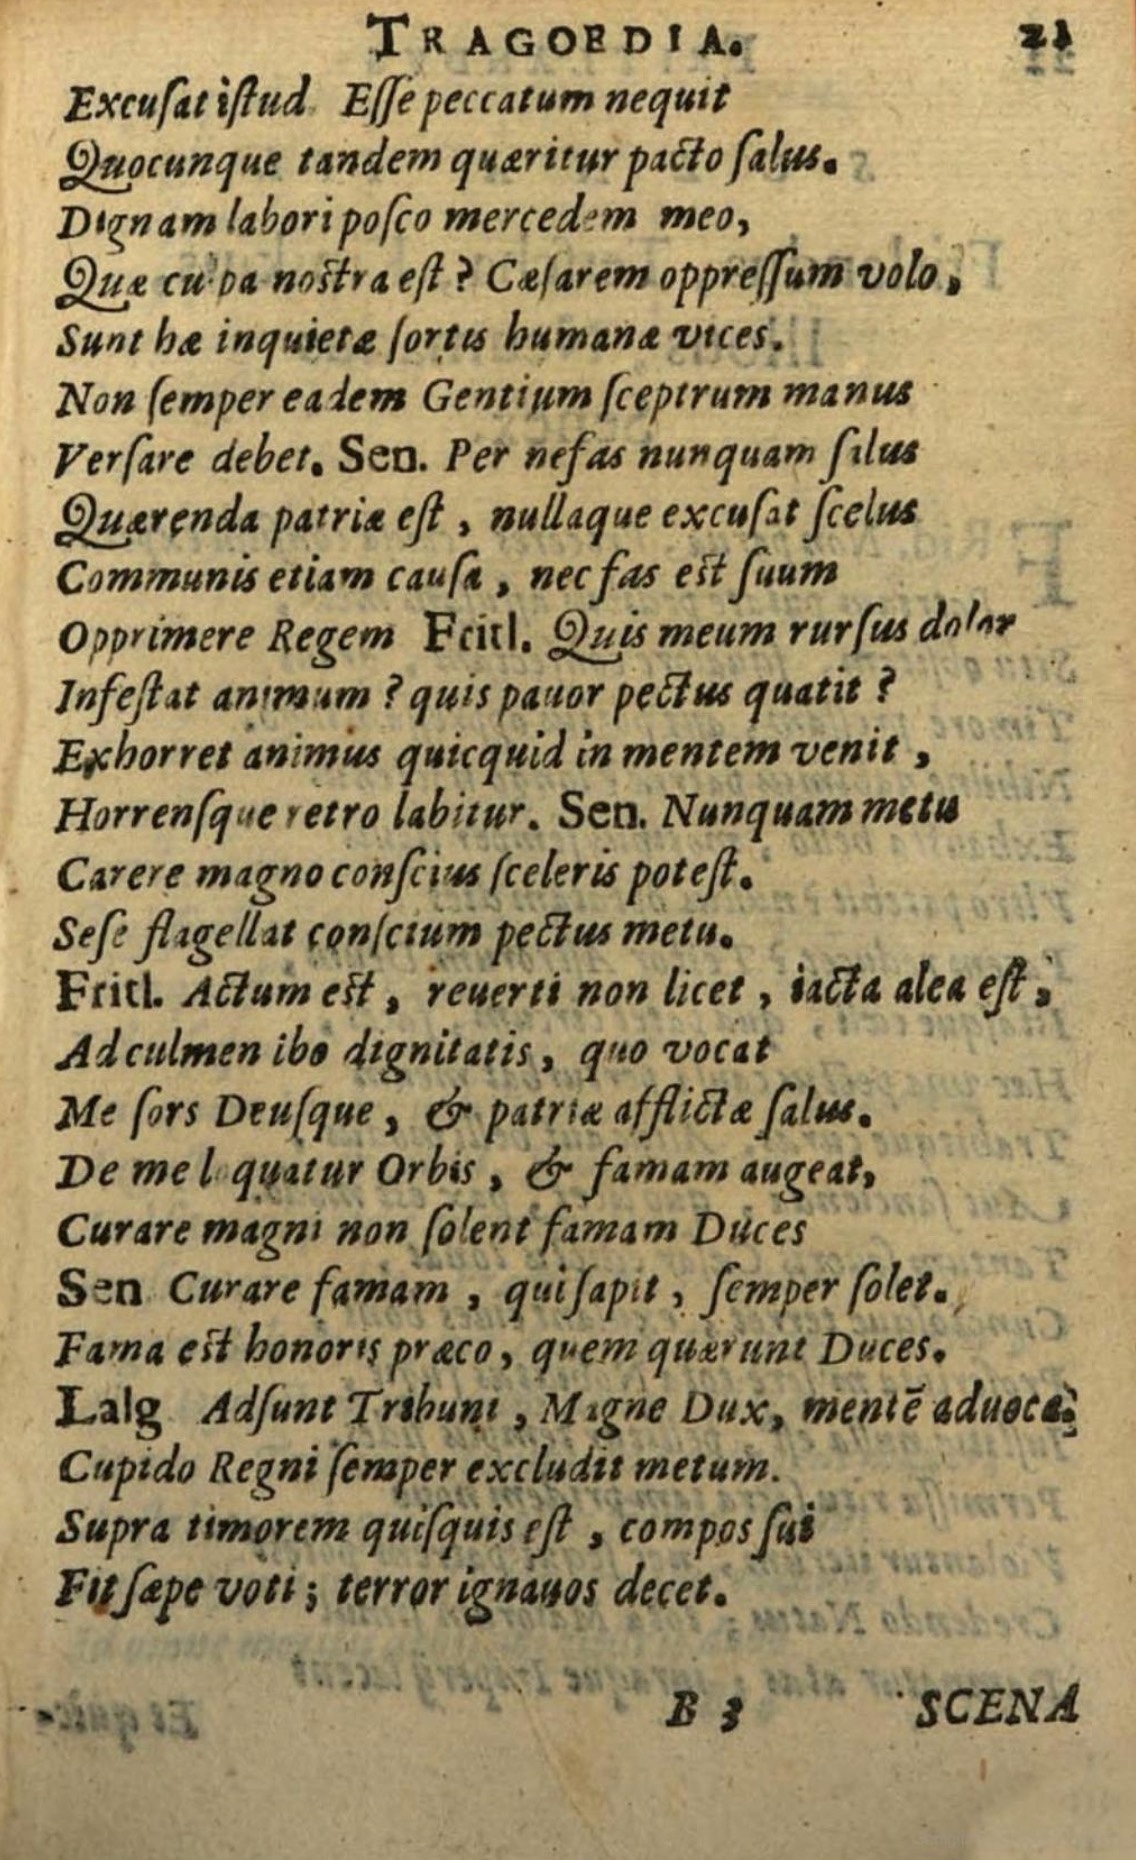 TRAGOEDIA. 21
Excuſat iſtud Eſſe peccatum nequit
Quocunque tandem quæritur pacto ſalus.
Dignam labori poſco mercedem meo,
Quæ cu pa nostra eſt? Cæſarem oppreſſum volo,
Sunt hæ inquietæ ſortis humanæ vices.
Non ſemper eadem Gentium ſceptrum manus
Verſare debet. Sen. Per nefas nunquam ſalus
Quærenda patriæ eſt, nullaque excuſat ſcelus
Communis etiam cauſa, nec fas est ſuum
Opprimere Regem Fritl. Quis meum rurſus dolor
Infeſtat animum? quis pauor pectus quatit?
Exhorret animus quicquid in mentem venit,
Horrenſque retro labitur. Sen. Nunquam metu
Carere magno conſcius ſceleris poteſt.
Seſe flagellat conſcium pectus metu.
Fritl. Actum est, reuerti non licet, iacta alea eſt,
Ad culmen ibo dignitatis, quo vocat
Me ſors Deuſque, & patriæ afflictæ ſalus.
De me l quatur Orbis, & famam augeat,
Curare magni non ſolent famam Duces
Sen Curare famam, qui ſapit, ſemper ſolet.
Fama est honoris præco, quem quærunt Duces.
Lalg Adſunt Tribuni, Magne Dux, mentē aduoca;
Cupido Regni ſemper excludit metum.
Supra timorem quiſquis eſt, compos ſui
Fit ſæpe voti; terror ignauos decet.
B 3 SCENA